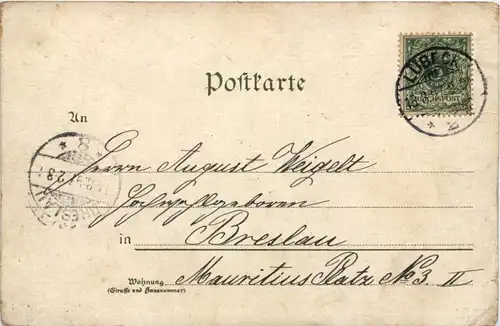 Postkarte
LÜBECK
An
Herrn August Weigelt
Hochwohlgeboren
in Breslau
Wohnung Mauritius Platz No 3. II
(Straße und Hausnummer)
BRESLAU